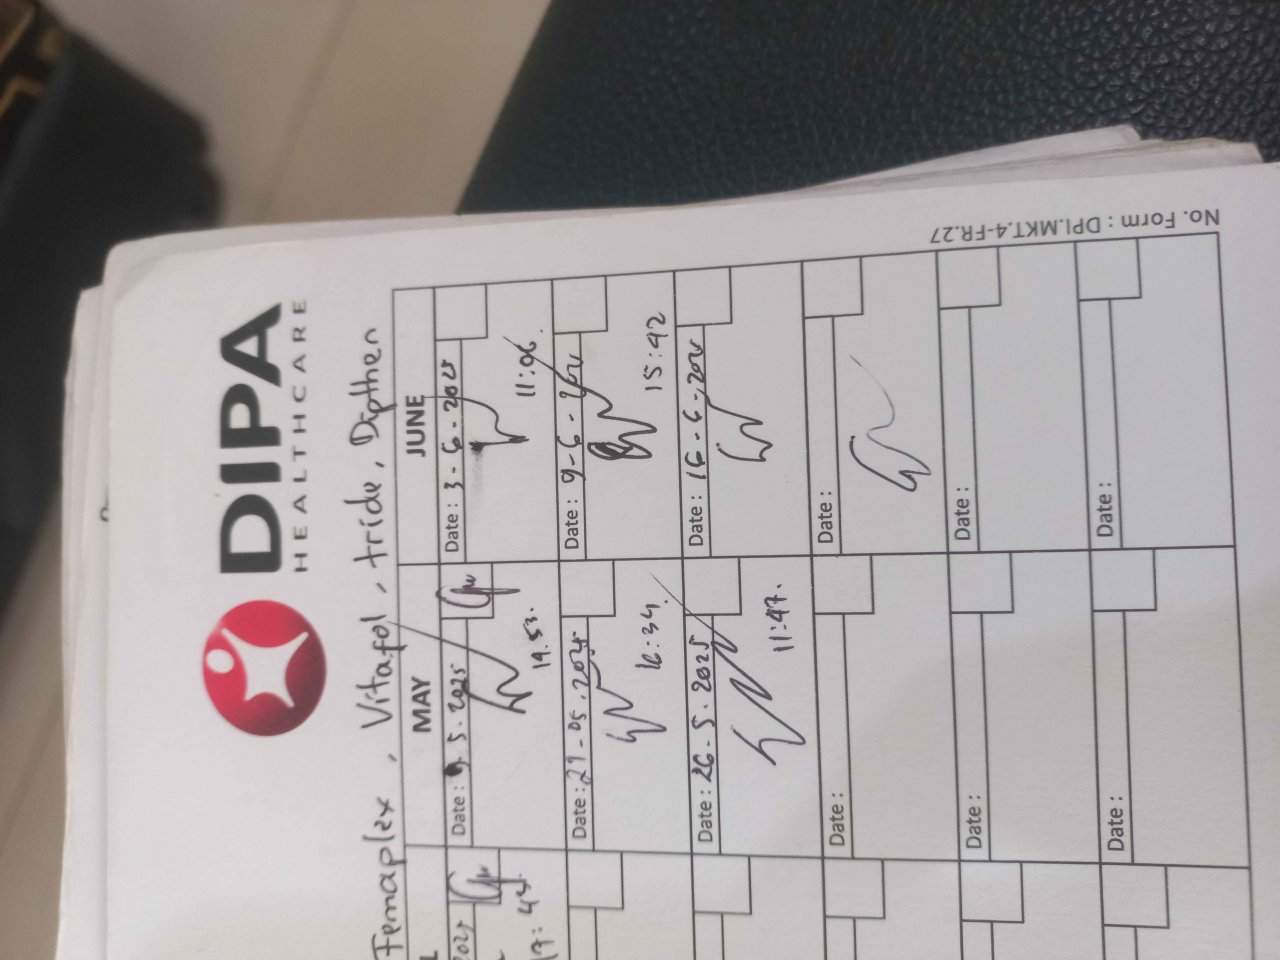 DIPA
HEALTHCARE
Femaplex, Vitafol, tride, Dipthen
MAY
JUNE
Date: 9.5.2025
19.53.
Date: 3-6-2025
11:06.
17:45
Date: 21-05.2025
16:34.
Date: 9-6-
15:42
Date: 26-5.2025
11:47.
Date: 16-6-202
Date:
Date:
Date:
Date:
Date:
Date:
No. Form : DPI.MKT.4-FR.27